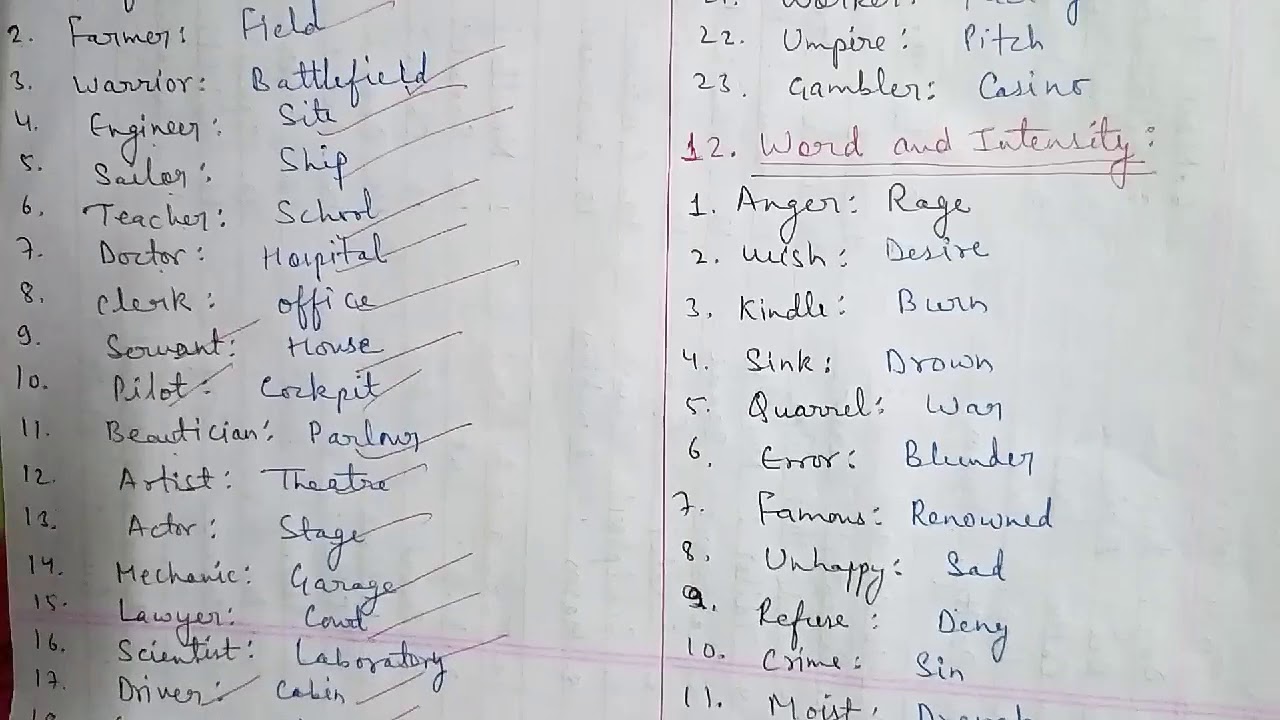 2. Farmer: Field
3. Warrior: Battlefield
4. Engineer: Site
5. Sailor: Ship
6. Teacher: School
7. Doctor: Hospital
8. Clerk: office
9. Servant: House
10. Pilot: Cockpit
11. Beautician: Parlour
12. Artist: Theatre
13. Actor: Stage
14. Mechanic: Garage
15. Lawyer: Court
16. Scientist: Laboratory
17. Driver: Cabin
22. Umpire: Pitch
23. Gambler: Casino
12. Word and Intensity:
1. Anger: Rage
2. Wish: Desire
3. Kindle: Burn
4. Sink: Drown
5. Quarrel: War
6. Error: Blunder
7. Famous: Renowned
8. Unhappy: Sad
9. Refuse: Deny
10. Crime: Sin
11. Moist: